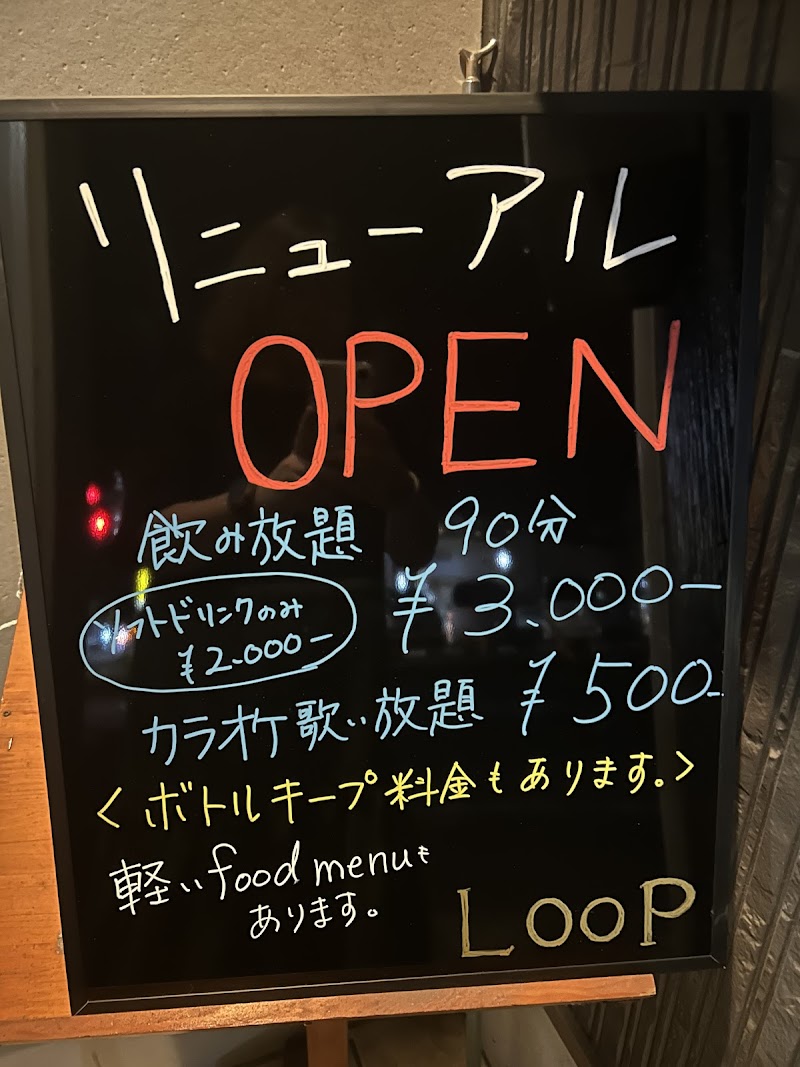 リニューアル
OPEN
飲み放題 90分
¥3.000-
ソフトドリンクのみ
¥2.000-
カラオケ歌い放題 ¥500-
<ボトルキープ料金もあります。>
軽いfood menuも
あります。
LOOP